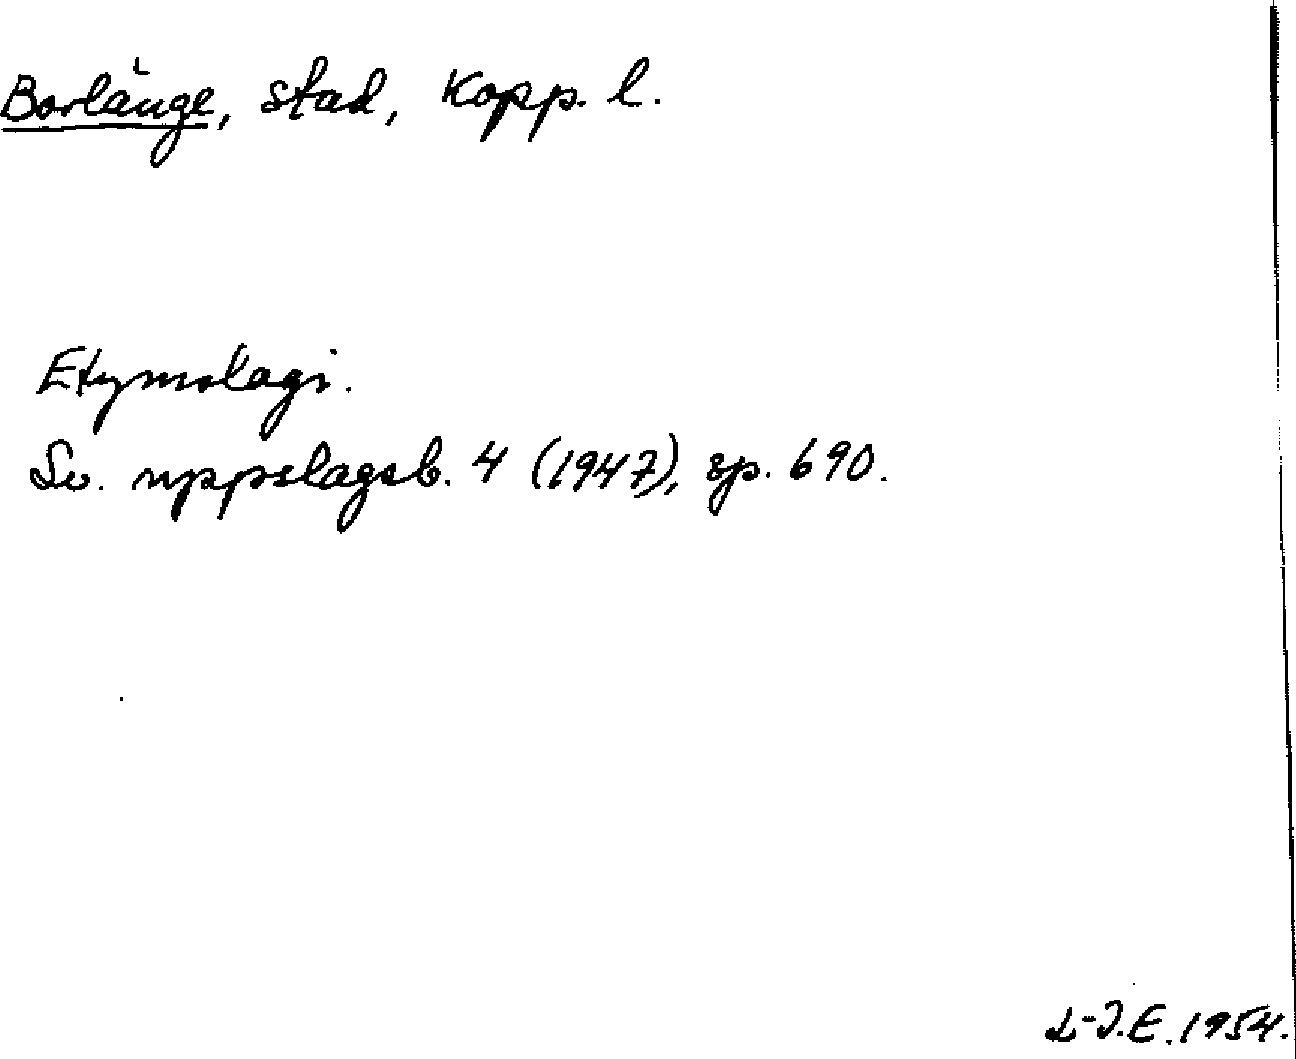 Borlänge, stad, Kopp. l.
Etymologi.
Sv. uppslagsb. 4 (1947), sp. 690.
L-I.E. 1954.